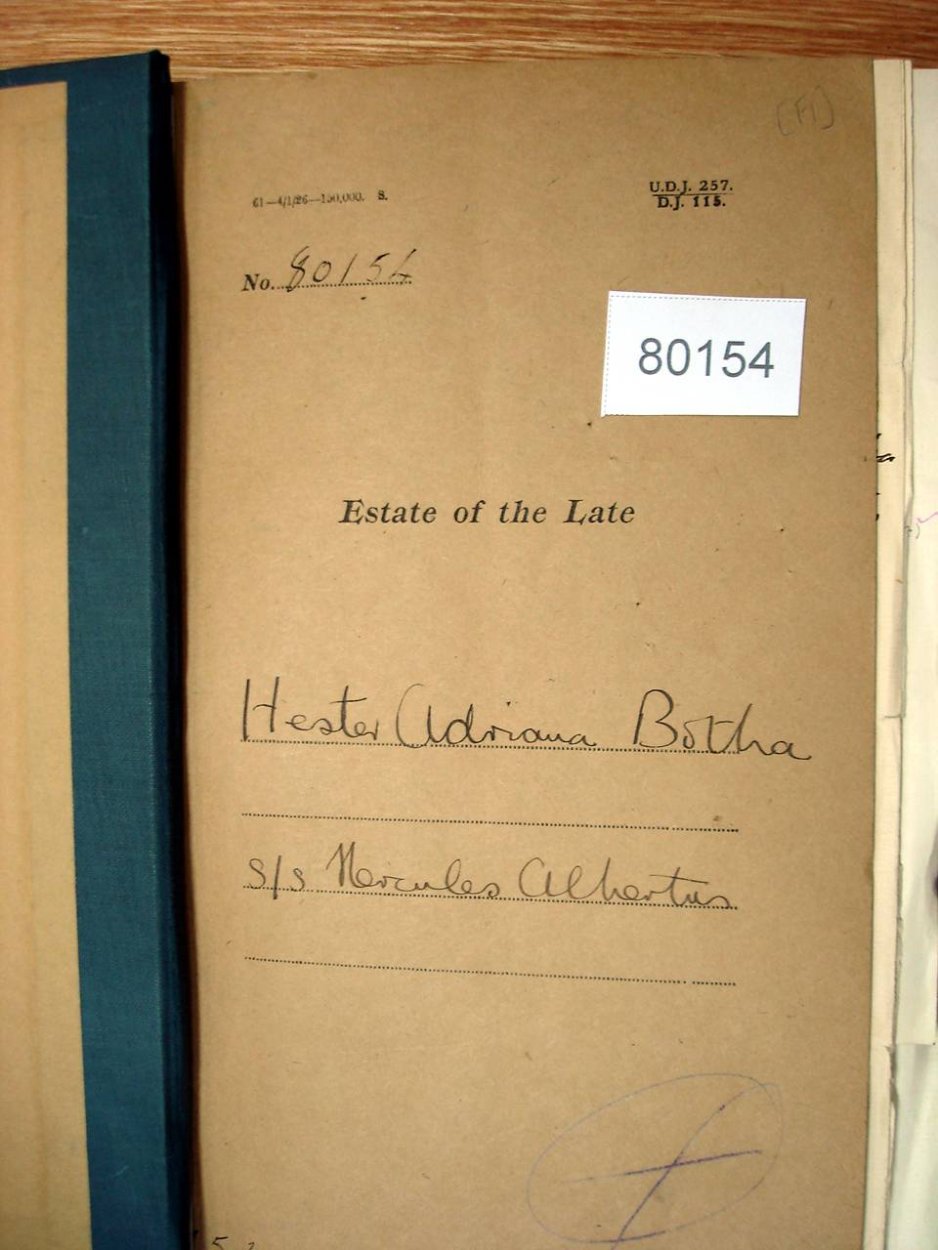 [F1]
61—4/1/26—150,000. S.
U.D.J. 257.
D.J. 115.
No. 80154
80154
Estate of the Late
Hester Adriana Botha
s/s Hercules Albertus